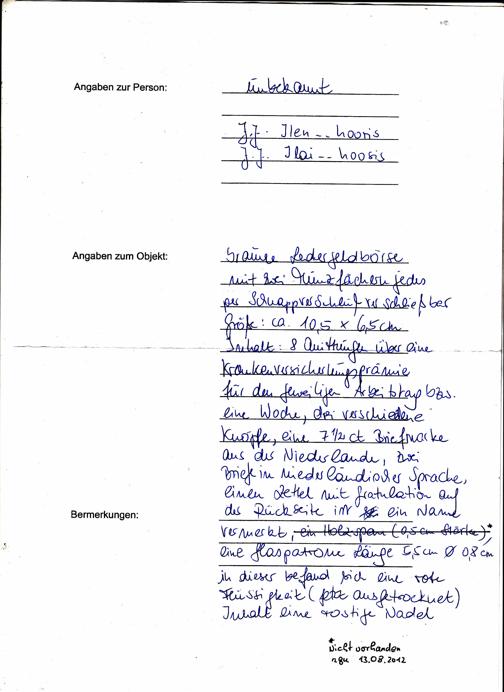 Angaben zur Person:
unbekannt
J.J. Ilen -- hooris
J.J. Ilai -- hoosis
Angaben zum Objekt:
braune Ledergeldbörse
mit zwei Münzfächern jedes
per Schnappverschluß verschließbar
Größe: ca. 10,5 x 6,5 cm
Inhalt: 8 Quittungen über eine
Krankenversicherungsprämie
für den jeweiligen Arbeitstag bzw.
eine Woche, drei verschiedene
Knöpfe, eine 7 1/2 ct Briefmarke
aus der Niederlande, zwei
Briefe in niederländischer Sprache,
einen Zettel mit Gratulation auf
der Rückseite ist ein Name
Bermerkungen:
vermerkt, ein Holzspan (0,5 cm Stärke),*
eine Glaspatrone Länge 5,5 cm Ø 0,8 cm
in dieser befand sich eine rote
Flüssigkeit (jetzt ausgetrocknet)
Inhalt eine rostige Nadel
* Nicht vorhanden
13.08.2012